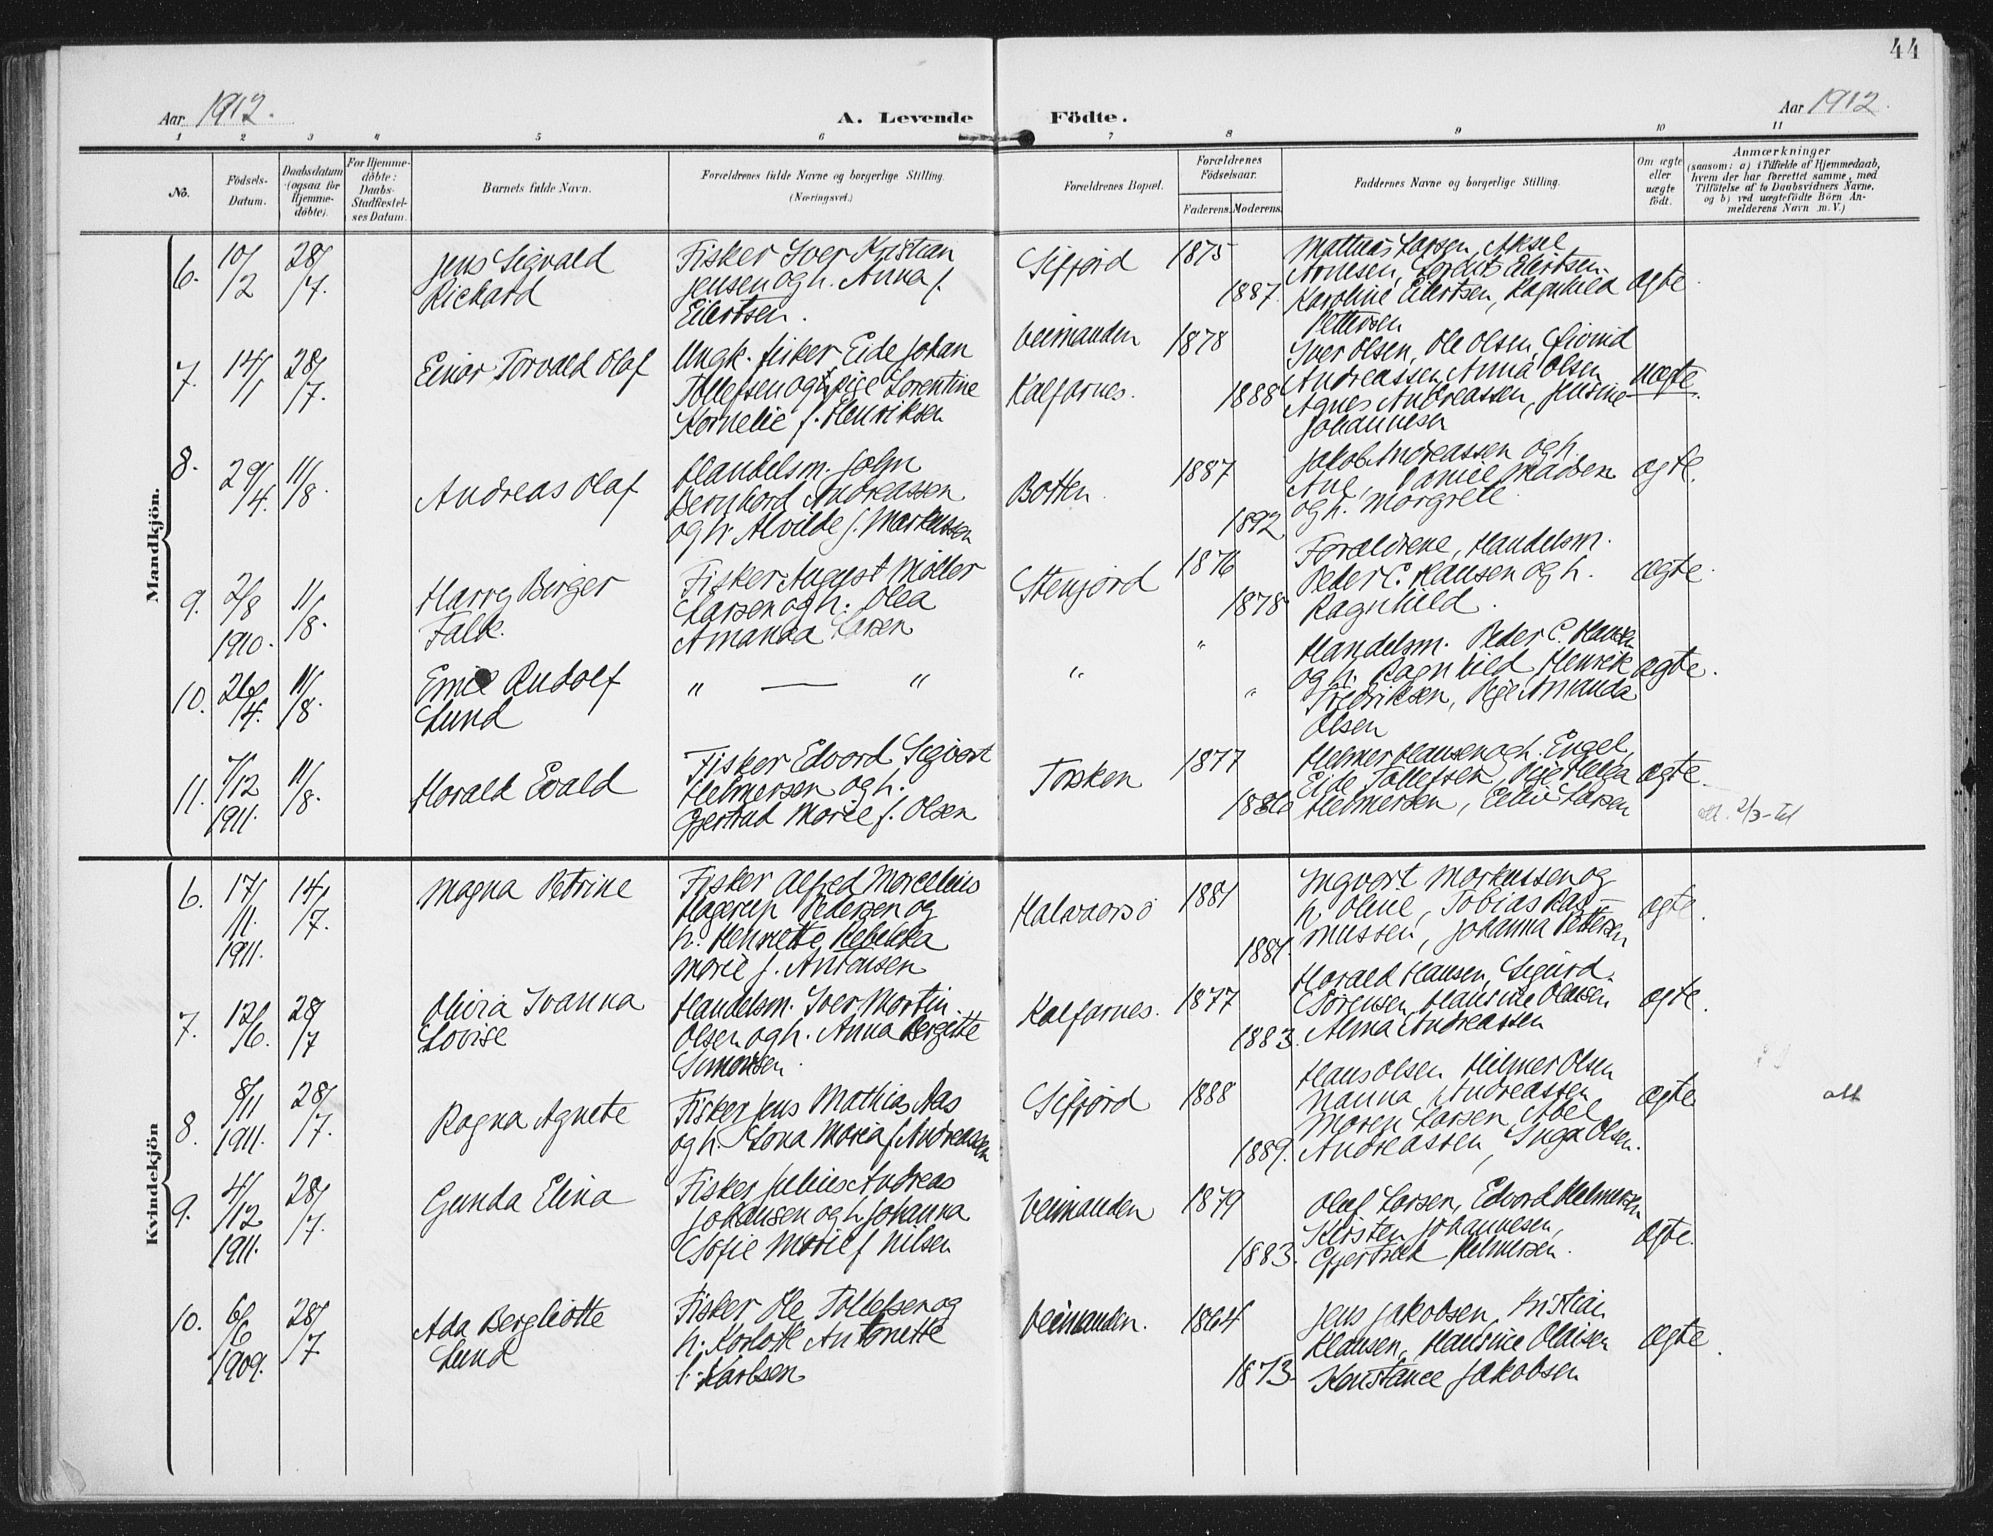 44
Aar 1912.
A. Levende Födte.
Aar 1912.
1 2 3 4 5 6 7 8 9 10 11
No.
Födsels-
Datum.
Daabsdatum
(ogsaa for
Hjemme-
döbte).
For Hjemme-
döbte:
Daabs-
Stadfæstel-
ses Datum.
Barnets fulde Navn.
Forældrenes fulde Navne og borgerlige Stilling.
(Næringsvei.)
Forældrenes Bopæl.
Forældrenes
Födselsaar.
Faderens. Moderens.
Faddernes Navne og borgerlige Stilling.
Om ægte
eller
uægte
födt.
Anmærkninger
(saasom: a) i Tilfælde af Hjemmedaab,
hvem der har forrettet samme, med
Tilföielse af to Daabsvidners Navne,
og b) ved uægtefödte Börn An-
melderens Navn m. V.)
Mandkjön.
6.
10/2
28/7.
Jens Sigvald
Rickard
Fisker Iver Kristian
Jensen og h. Anna f.
Eilertsen.
Sifjord
1875
1887.
Mathias Larsen, Aksel
Arnesen, Eilertsen.
Karoline Eilertsen, Ragnhild
Pettersen
ægte.
7.
14/1
28/7.
Einar Torvald Olaf
Ungk. fisker Eide Johan
Tollefsen og pige Lorentine
Kornelie f. Henriksen
Veimanden
Kalfarnes.
1878
1888
Iver Olsen, Ole Olsen, Eivind
Andreassen, Anna Olsen
Agnes Andreassen, Jensine
Johannesen
uægte.
8.
29/4.
11/8.
Andreas Olaf
Handelsm. John
Bernhard Andreassen
og h. Alvilde f. Markussen
Botten.
1887
1892
Jakob Andreassen og h.
Ane, Daniel Madsen
og h. Margrete
ægte.
9.
2/8
1910.
11/8.
Harry Birger
Falk.
Fisker August Möller
Larsen og h. Olea
Amanda Larsen
Stenfjord
1876
1878
Forældrene, Handelsm.
Peder C. Hansen og h.
Ragnhild.
ægte.
10.
26/4.
11/8.
Emil Rudolf
Lund
" — "
"
"
"
Handelsm. Peder C. Hansen
og h. Ragnhild, Henrik
Fredriksen, Pige Amanda
Olsen
ægte.
11.
7/12
1911.
11/8.
Harald Evald
Fisker Edvard Sigvart
Helmersen og h.
Gjertrud Marie f. Olsen
Torsken
1877
1886
Helmer Hansen og h. Engel,
Eide Tollefsen, Pige Helga
Helmersen, Larsen
ægte.
att. 2/3-41
Kvindekjön
6.
17/11.
1911.
14/7.
Magna Petrine
Fisker Alfred Marcelius
Hagerup Pedersen og
h. Henriette Rebekka
Marie f. Antonsen
Halvaorsö
1881
1881.
Ingvart Markussen og
h. Oline, Tobias Ras-
mussen, Johanna Pettersen
ægte.
7.
12/6.
28/7
Olivia Ivanna
Lovise
Handelsm. Iver Martin
Olsen og h. Anna Bergitte
Simonsen.
Kalfarnes.
1877
1883.
Harald Hansen, Sigurd
Sörensen, Hansine Olaisen
Alma Andreassen
ægte.
8.
8/11
1911.
28/7.
Ragna Agnete
Fisker Jens Mathias Aas
og h. Lona Maria f. Andreassen
Sifjord
1888
1889.
Hans Olsen Hilmer Olsen
Nanna Andreassen
Maren Larsen, Abel
Andreassen, Inga Olsen.
ægte
att
9.
4/12
1911.
28/7.
Gunda Elina
Fisker Julius Andreas
Johansen og h. Johanna
Sofie Marie f. Nilsen
Veimanden
1879
1883.
Olaf Larsen, Edvard Helmersen
Kirsten Johannesen,
Gjertrud Helmersen.
ægte.
10.
6/6
1909.
28/7
Ada Bergliotte
Lund
Fisker Ole Tollefsen og
h. Karlotte Antonette
f. Karlsen
Veimanden.
1864
1873.
Jens Jakobsen, Kristian
Klausen, Hansine Olaisen
Konstance Jakobsen
ægte.